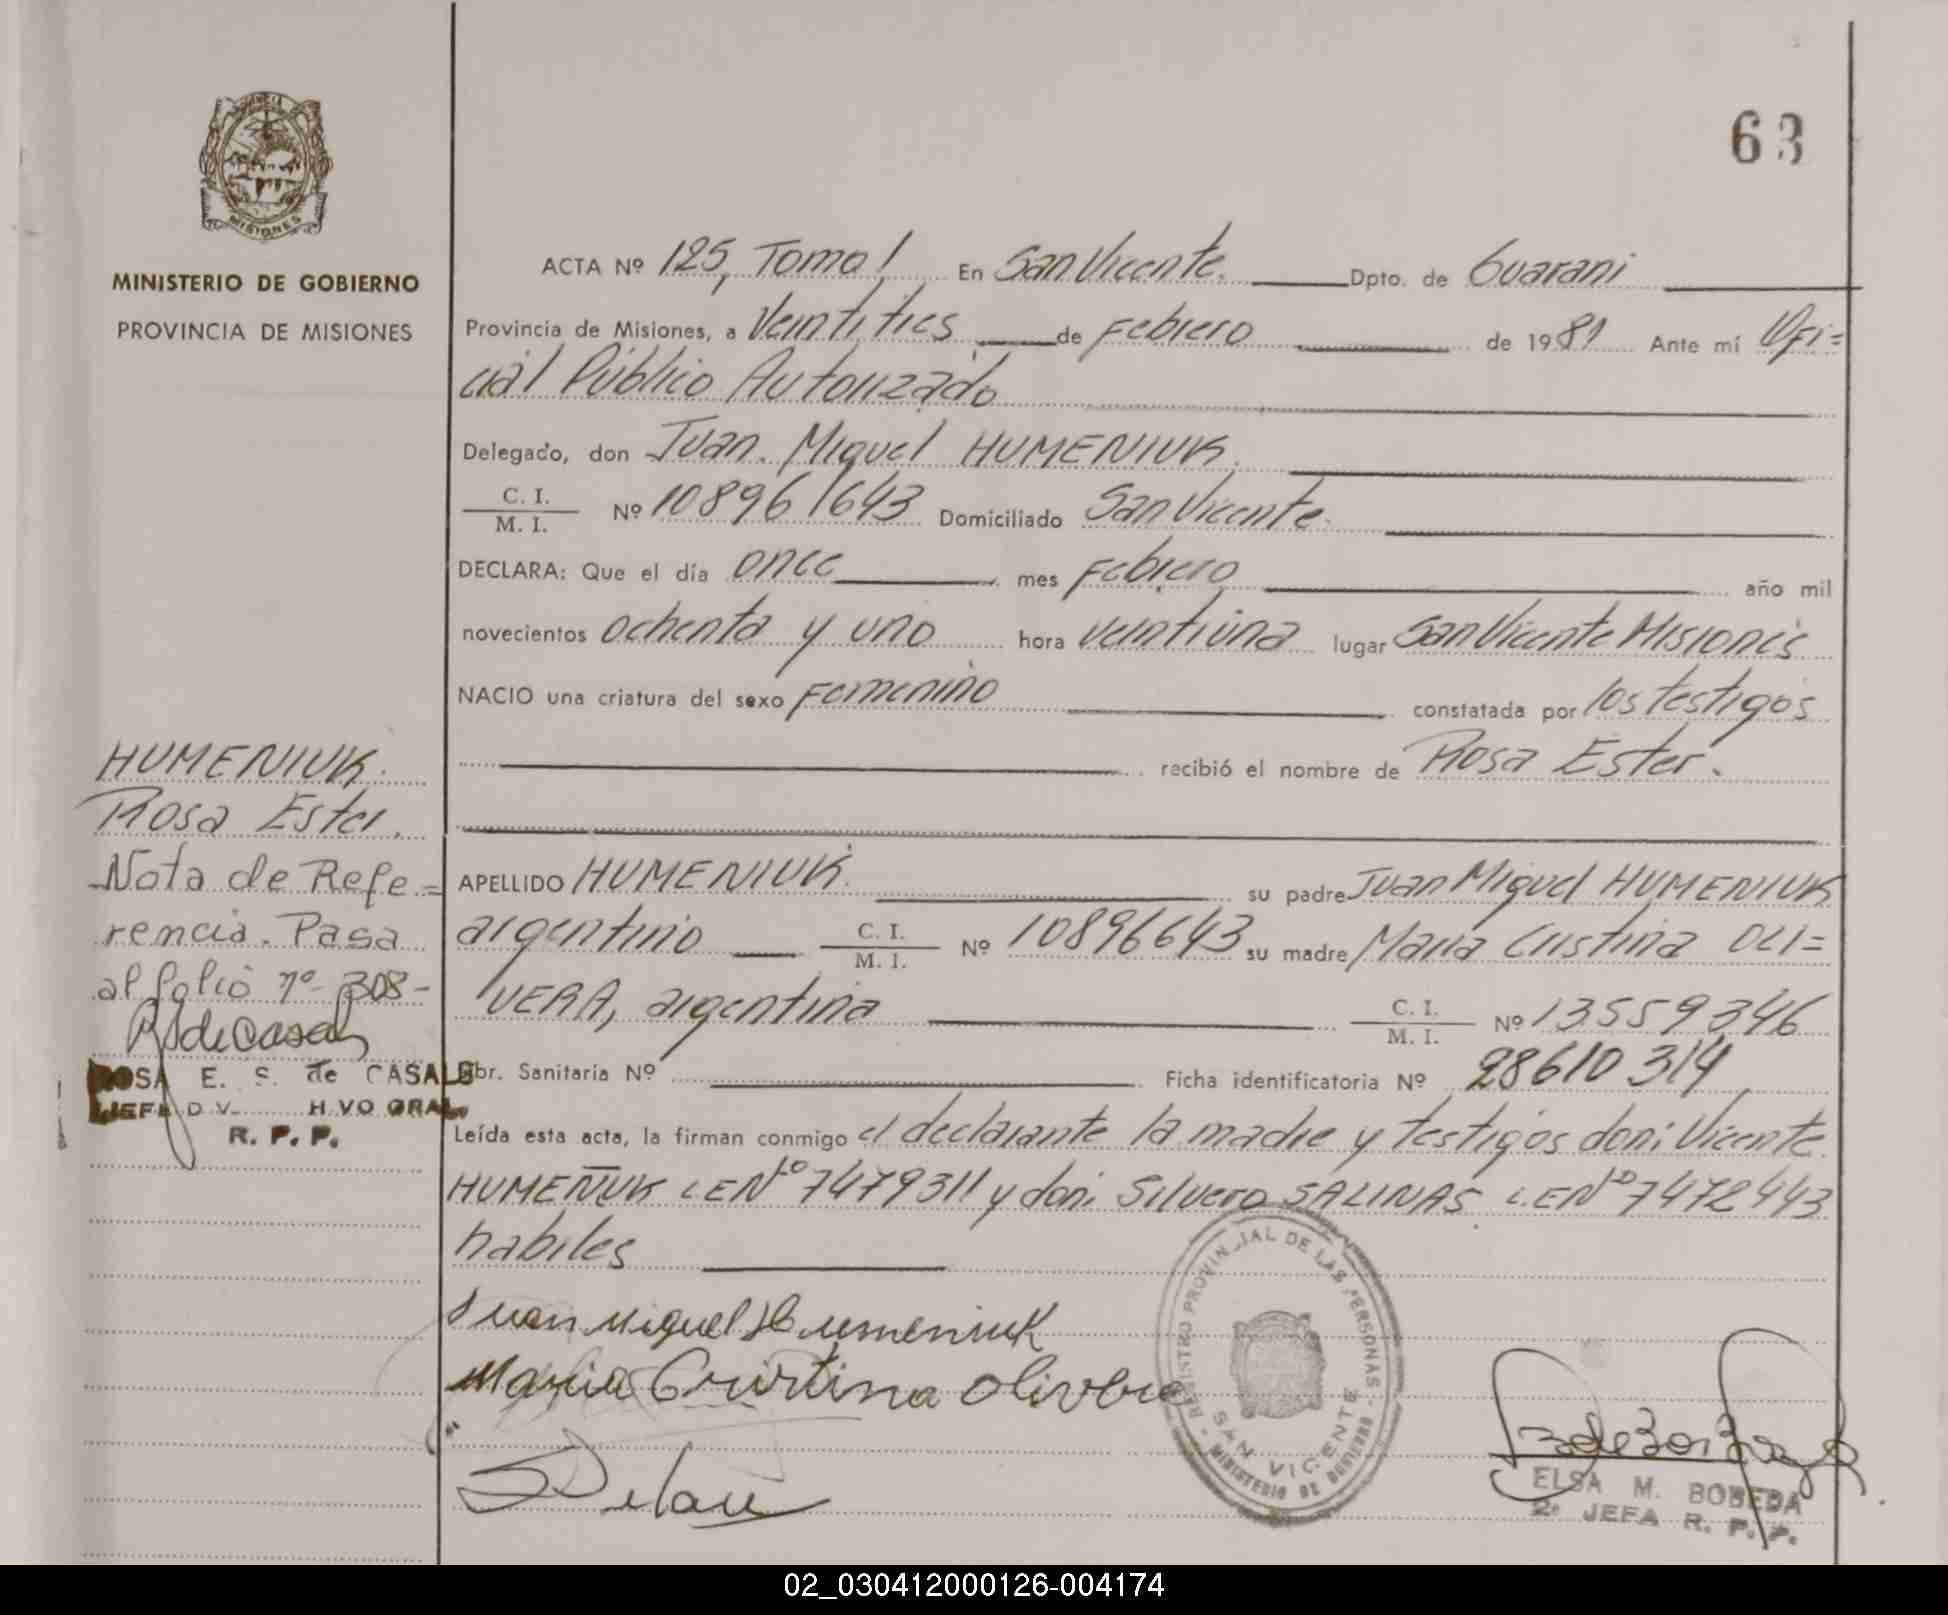 63
MISIONES
MINISTERIO DE GOBIERNO
PROVINCIA DE MISIONES
ACTA Nº 125, Tomo I En San Vicente. Dpto. de Guarani
Provincia de Misiones, a Veintitres de Febrero de 1981 Ante mí Ofi=
cial Público Autorizado
Delegado, don Juan Miguel HUMENIUK
C. I.
M. I. Nº 108961643 Domiciliado San Vicente.
DECLARA: Que el día once mes Febrero año mil
novecientos ochenta y uno hora veintiuna lugar San Vicente Misiones
NACIO una criatura del sexo Femenino constatada por los testigos
recibió el nombre de Rosa Ester.
APELLIDO HUMENIUK. su padre Juan Miguel HUMENIUK
argentino C. I.
M. I. Nº 10896643 su madre Maria Cristina OLI=
VERA, argentina C. I.
M. I. Nº 13559346
Lbr. Sanitaria Nº Ficha identificatoria Nº 28610314
Leída esta acta, la firman conmigo el declarante la madre y testigos don: Vicente
HUMEÑUK L.E Nº 7479311 y don: Silvero SALINAS L.E Nº 7472443
habiles
HUMENIUK.
Rosa Ester.
Nota de Refe=
rencia. Pasa
al folio nº 308-
RSdeCasals
ROSA E. S. de CASALS
JEFA DIV. H.VO GRAL.
R. P. P.
Juan Miguel Humeniuk
Maria Cristina Olivera
REGISTRO PROVINCIAL DE LAS PERSONAS
SAN VICENTE
MINISTERIO DE GOBIERNO
ELSA M. BOBEDA
2º JEFA R. P. P.
02_030412000126-004174